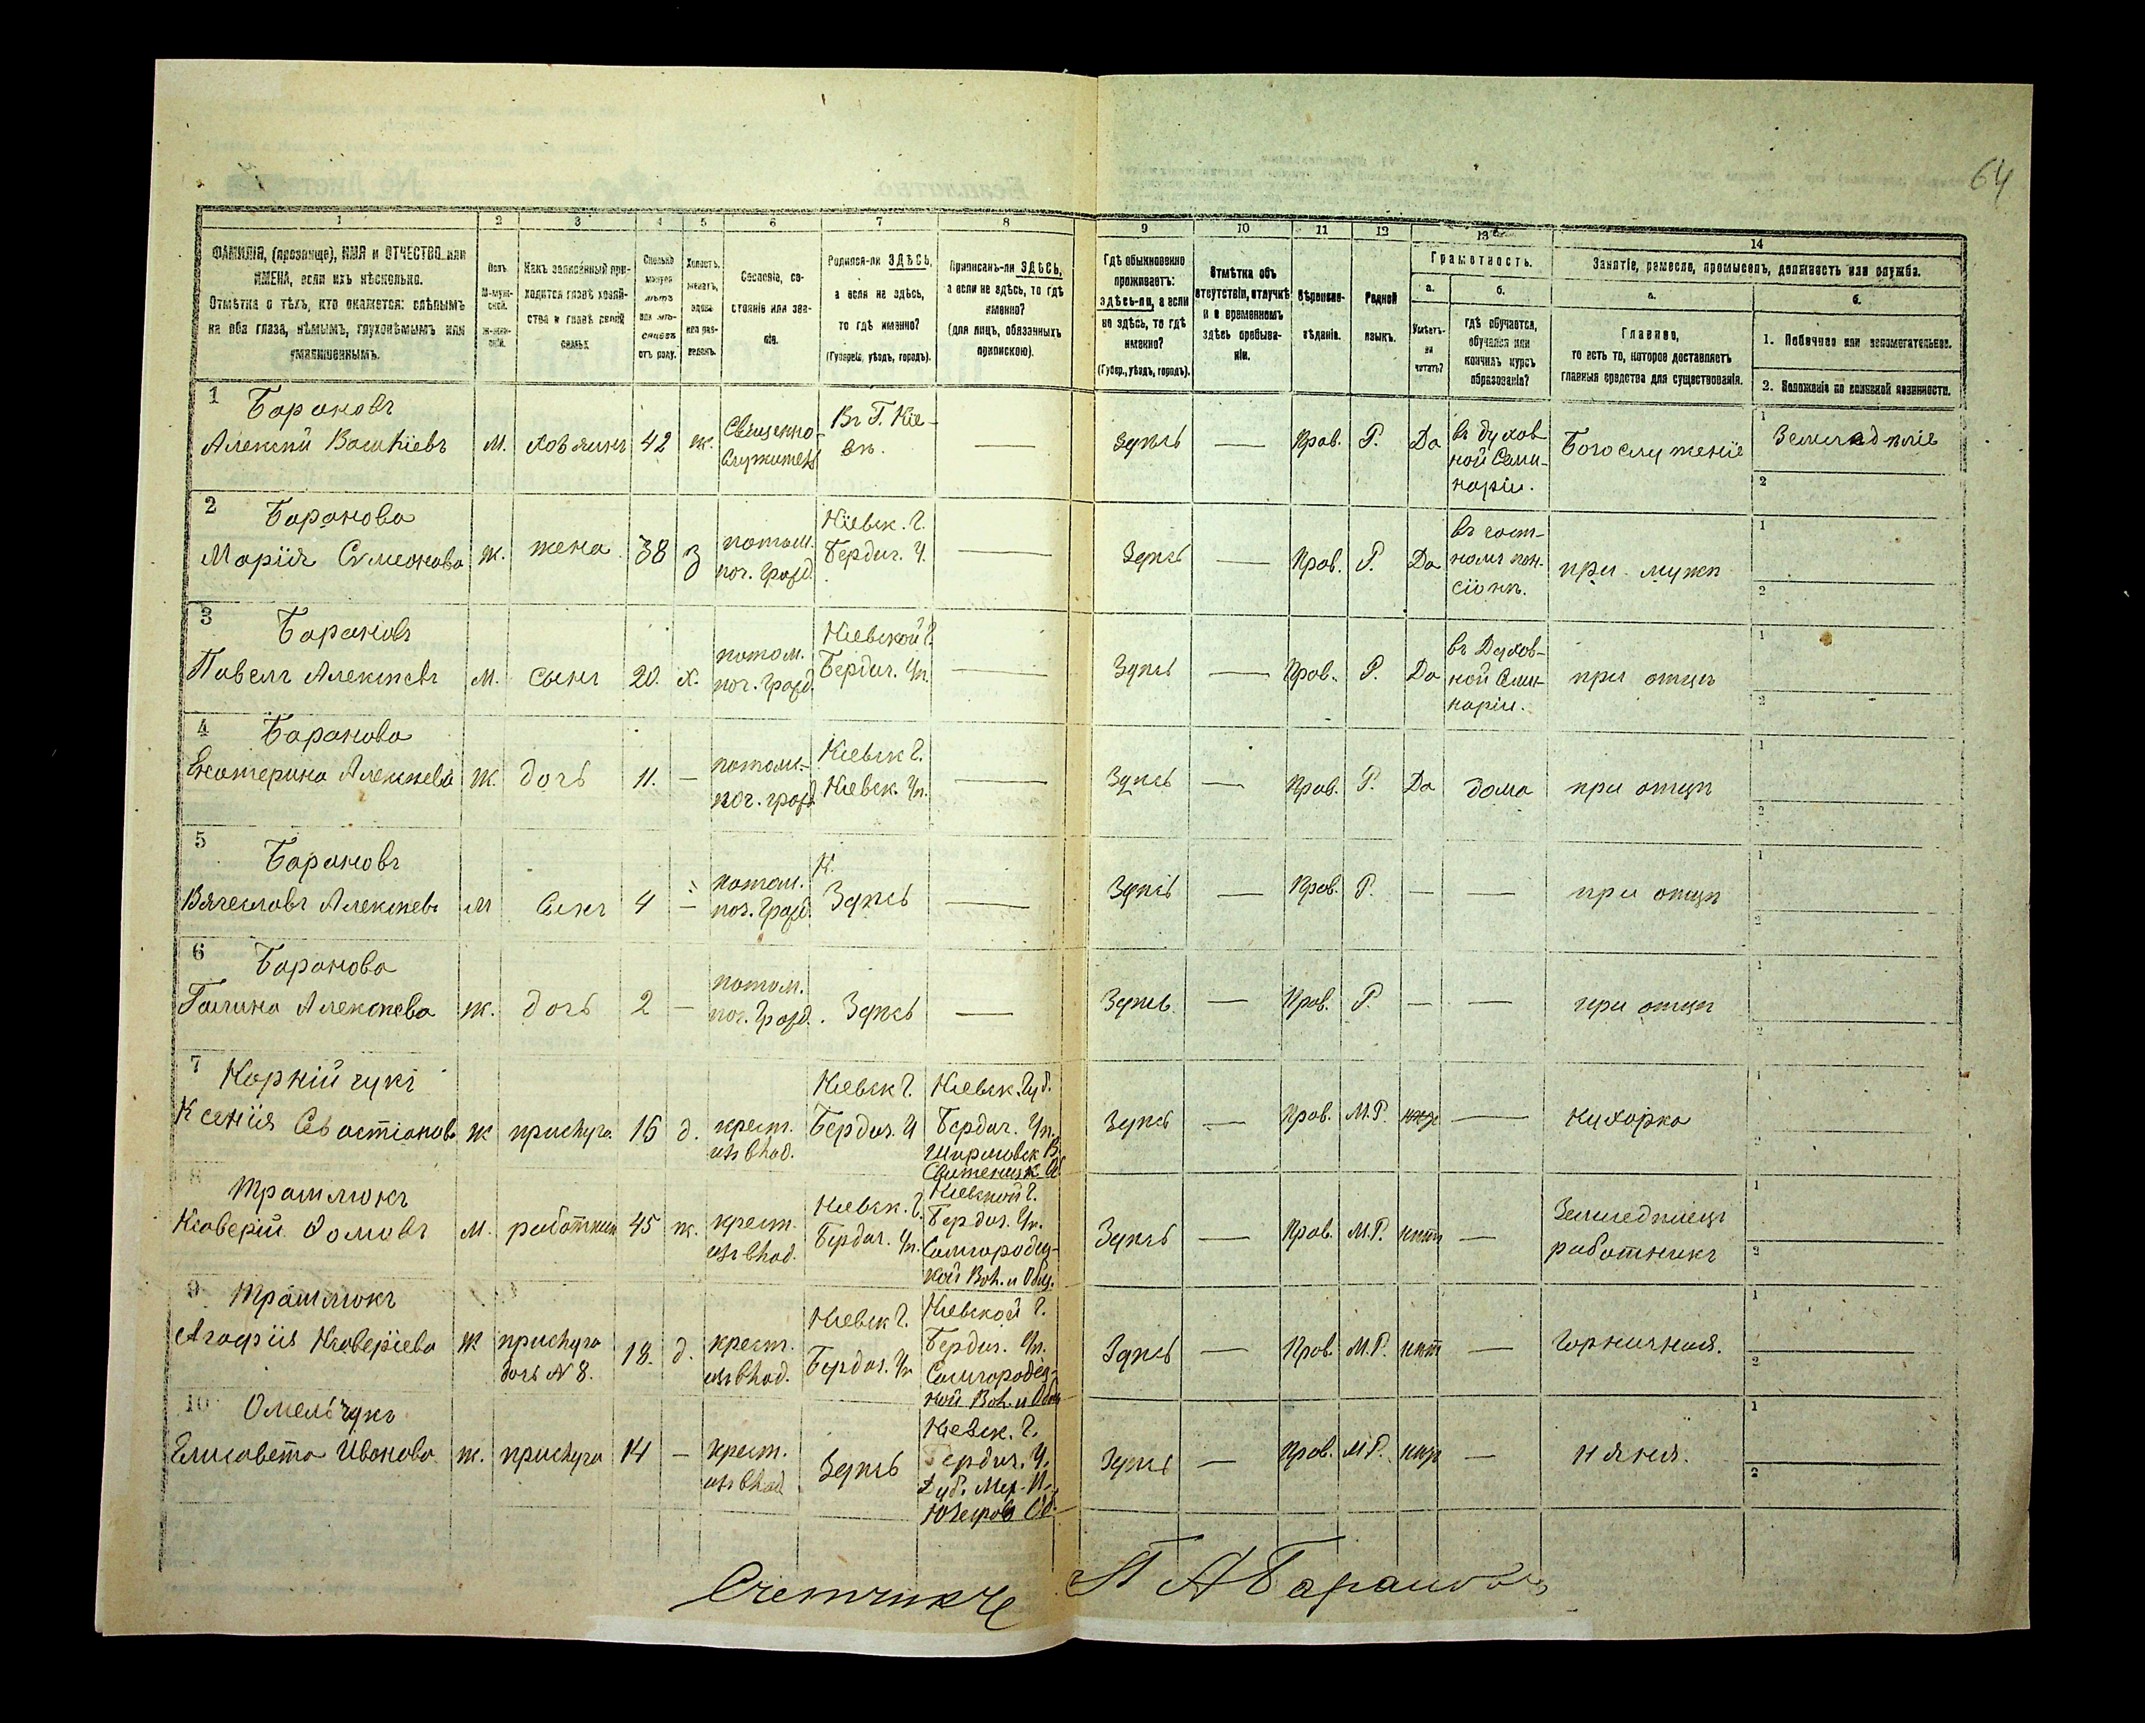 64
1
2
3
4
5
6
7
8
9
10
11
12
13
14
ФАМИЛІЯ, (прозвище), ИМЯ и ОТЧЕСТВО или
ИМЕНА, если ихъ нѣсколько.
Отмѣтка о тѣхъ, кто окажется: слѣпымъ
на оба глаза, нѣмымъ, глухонѣмымъ или
умалишеннымъ.
Полъ
М-муж-
ской.
Ж-жен-
скій.
Какъ записанный при-
ходится главѣ хозяй-
ства и главѣ своей
семьи.
Сколько
минуло
лѣтъ
или мѣ-
сяцевъ
отъ роду.
Холостъ,
женатъ,
вдовъ
или раз-
веденъ.
Сословіе, со-
стояніе или зва-
ніе.
Родился-ли ЗДѢСЬ,
а если не здѣсь,
то гдѣ именно?
(Губернія, уѣздъ, городъ).
Приписанъ-ли ЗДѢСЬ,
а если не здѣсь, то гдѣ
именно?
(для лицъ, обязанныхъ
припискою).
Гдѣ обыкновенно
проживаетъ:
здѣсь-ли, а если
не здѣсь, то гдѣ
именно?
(Губер., уѣздъ, городъ).
Отмѣтка объ
отсутствіи, отлучкѣ
и о временномъ
здѣсь пребыва-
ніи.
Вѣроиспо-
вѣданіе.
Родной
языкъ.
Грамотность.
а.
Умѣетъ-
ли
читать?
б.
гдѣ обучается,
обучался или
кончилъ курсъ
образованія?
Занятіе, ремесло, промыселъ, должность или служба.
а.
Главное,
то есть то, которое доставляетъ
главныя средства для существованія.
б.
1. Побочное или вспомогательное.
2. Положеніе по воинской повинности.
1 Барановъ
Алексѣй Васильевъ М. хозяинъ 42 ж. Священно-
служитель Въ Г. Кіе-
вѣ. — Здѣсь — Прав. Р. Да въ духов
ной Семи-
наріи. Богослуженіе 1 Земледѣліе
2
2 Баранова
Марія Сѵмеонова Ж. жена 38 з потом.
поч. гражд. Кіевск. Г.
Бердич. У. — Здѣсь — Прав. Р. Да въ част-
номъ пан-
сіонѣ. при мужѣ 1
2
3 Барановъ
Павелъ Алексѣевъ М. сынъ 20. х. потом.
поч. гражд. Кіевской Г.
Бердич. Уѣ. — Здѣсь — Прав. Р. Да въ Духов-
ной Семи-
наріи. при отцѣ 1
2
4 Баранова
Екатерина Алексѣева Ж. дочь 11. — потом.
поч. гражд. Кіевск Г.
Кіевск. Уѣ. — Здѣсь — Прав. Р. Да дома при отцѣ 1
2
5 Барановъ
Вячеславъ Алексѣевъ М сынъ 4 — потом.
поч. гражд. К.
Здѣсь — Здѣсь — Прав. Р. — — при отцѣ 1
2
6 Баранова
Галина Алексѣева ж. дочь 2 — потом.
поч. гражд. Здѣсь — Здѣсь — Прав. Р. — — при отцѣ 1
2
7 Корнійчукъ
Ксенія Ж прислуга 16 д. крест.
изъ влад. Кіевск Г
Бердич. У Кіевск. Губ.
Бердич. Уѣ.
Здѣсь — Прав. М.Р. — Кухарка 1
2
8
Ксаверій М. работникъ 45 ж. крест.
изъ влад. Кіевск. Г.
Бердич. Уѣ. Кіевской Г.
Бердич. Уѣ.
Самгородец-
кой Вол. и Общ. Здѣсь — Прав. М.Р. нѣтъ — Земледѣлецъ
работникъ 1
2
9
Агафія Ксаверіева Ж прислуга
дочь N 8. 18. д. крест.
изъ влад. Кіевск Г.
Бердич. Уѣ Кіевской Г.
Бердич. Уѣ.
Самгородец-
кой Вол. и Общ Здѣсь — Прав. М.Р. нѣтъ — Горничная. 1
2
10 Омельчукъ
Елисавета Иванова. ж. прислуга 14 — крест.
изъ влад. Здѣсь Кіевск. Г.
Бердич. У.
Здѣсь — Прав. М.Р. — няня. 1
2
Счетчикъ П А Барановъ